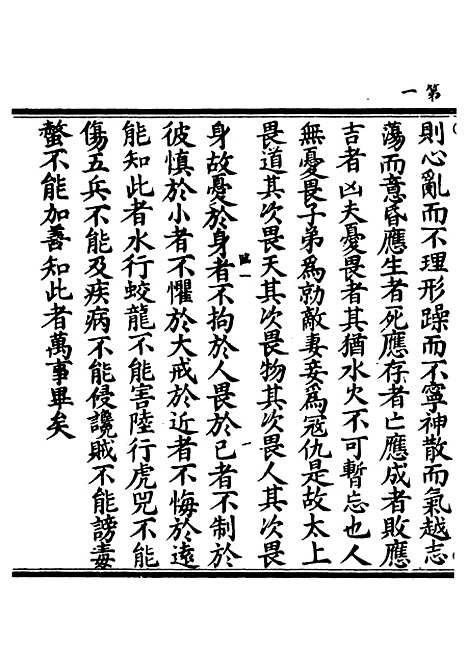 第一
則心亂而不理形躁而不寧神散而氣越志
蕩而意昏應生者死應存者亡應成者敗應
吉者凶夫憂畏者其猶水火不可暫忘也人
無憂畏子弟為勍敵妻妾為冦仇是故太上
畏道其次畏天其次畏物其次畏人其次畏
身故憂於身者不拘於人畏於己者不制於
彼慎於小者不懼於大戒於近者不悔於遠
能知此者水行蛟龍不能害陸行虎兕不能
傷五兵不能及疾病不能侵讒賊不能謗毒
螫不能加善知此者萬事畢矣